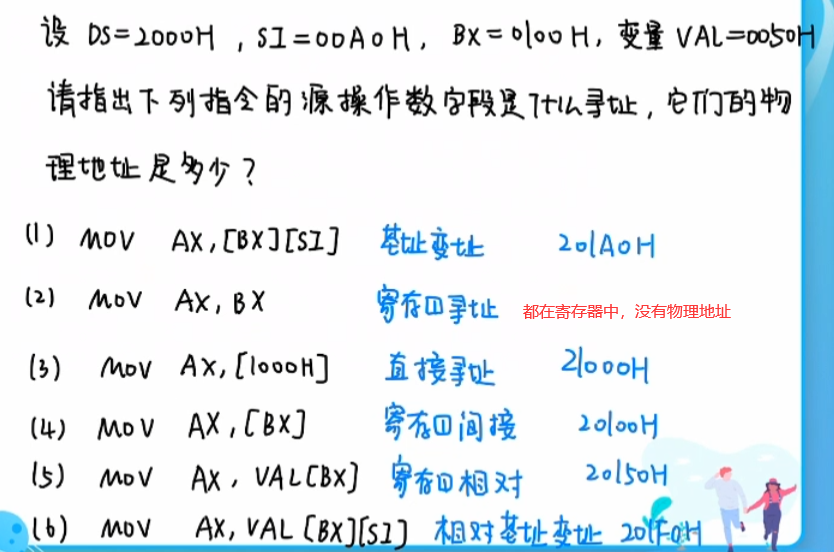 设 DS=2000H , SI=00A0H, BX=0100H, 变量 VAL=0050H
请指出下列指令的源操作数字段是什么寻址, 它们的物
理地址是多少?
(1) MOV AX, [BX][SI] 基址变址 201A0H
(2) MOV AX, BX 寄存口寻址 都在寄存器中，没有物理地址
(3) MOV AX, [1000H] 直接寻址 21000H
(4) MOV AX, [BX] 寄存口间接 20100H
(5) MOV AX, VAL[BX] 寄存口相对 20150H
(6) MOV AX, VAL [BX][SI] 相对基址变址 201F0H